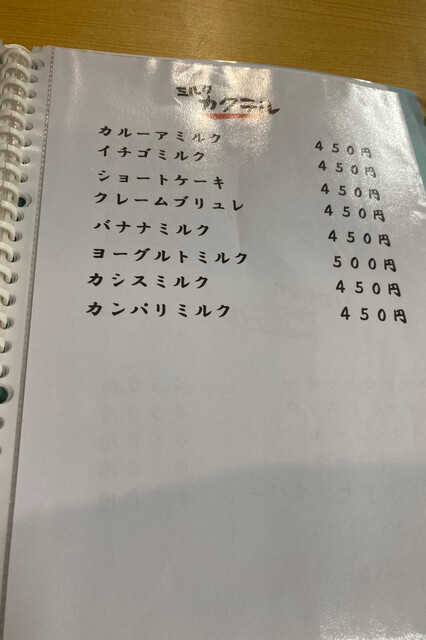 ミルク
カクテル
カルーアミルク ４５０円
イチゴミルク ４５０円
ショートケーキ ４５０円
クレームブリュレ ４５０円
バナナミルク ４５０円
ヨーグルトミルク ５００円
カシスミルク ４５０円
カンパリミルク ４５０円